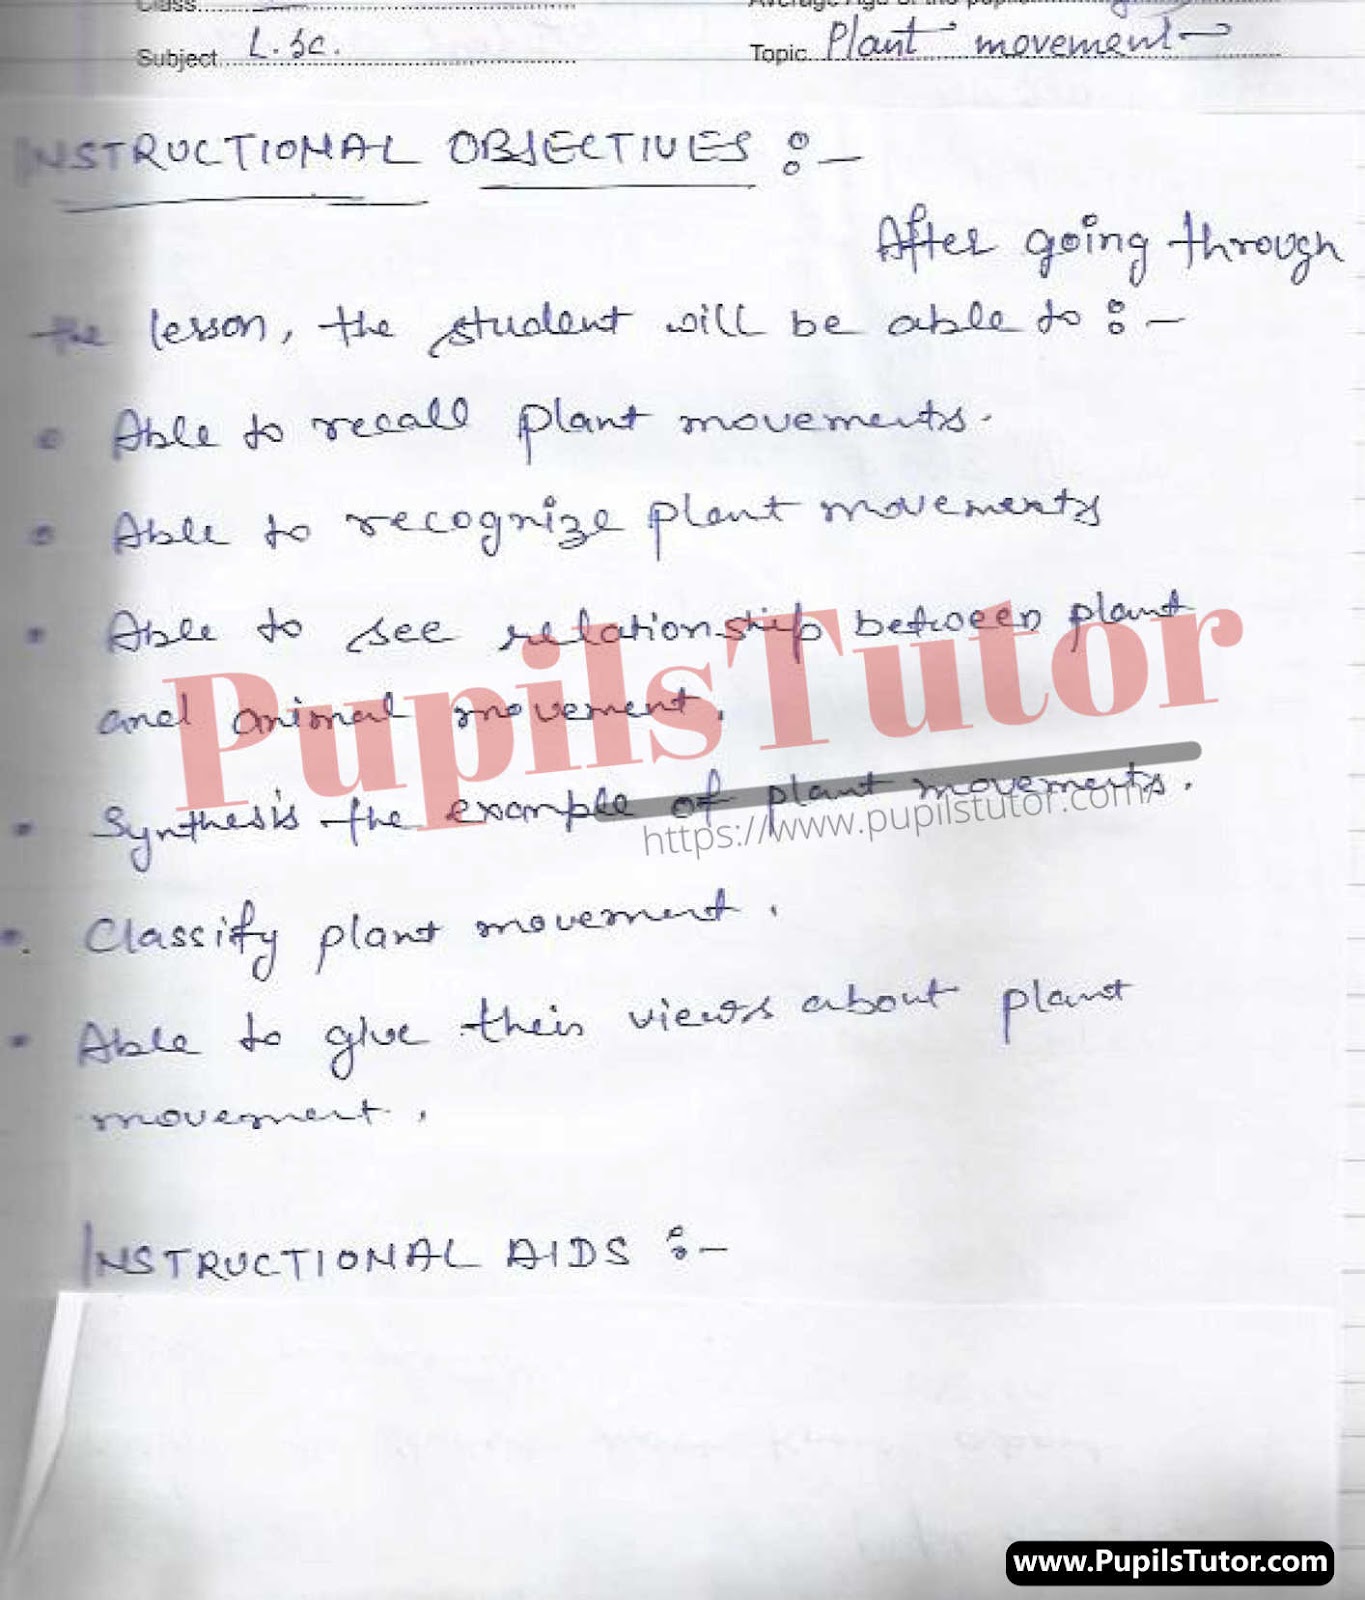 Class
Subject L.Sc.
Topic Plant movement
INSTRUCTIONAL OBJECTIVES :-
After going through
the lesson, the student will be able to :-
Able to recall plant movements.
Able to recognize plant movements
Able to see relationship between plant
and animal movement.
Synthesis the example of plant movements.
Classify plant movement.
Able to give their views about plant
movement.
INSTRUCTIONAL AIDS :-
PupilsTutor
https://www.pupilstutor.com/
www.PupilsTutor.com